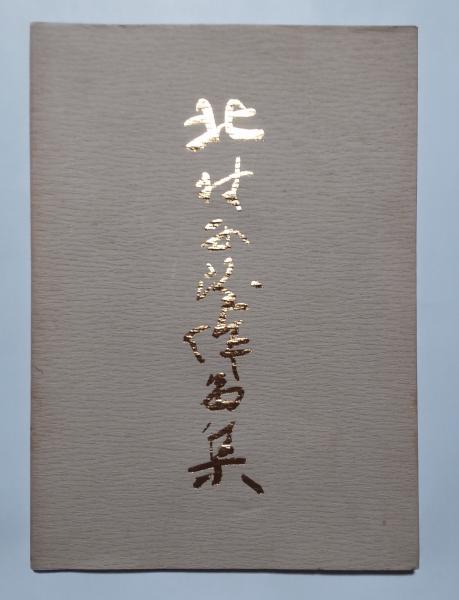 北村西望作品集